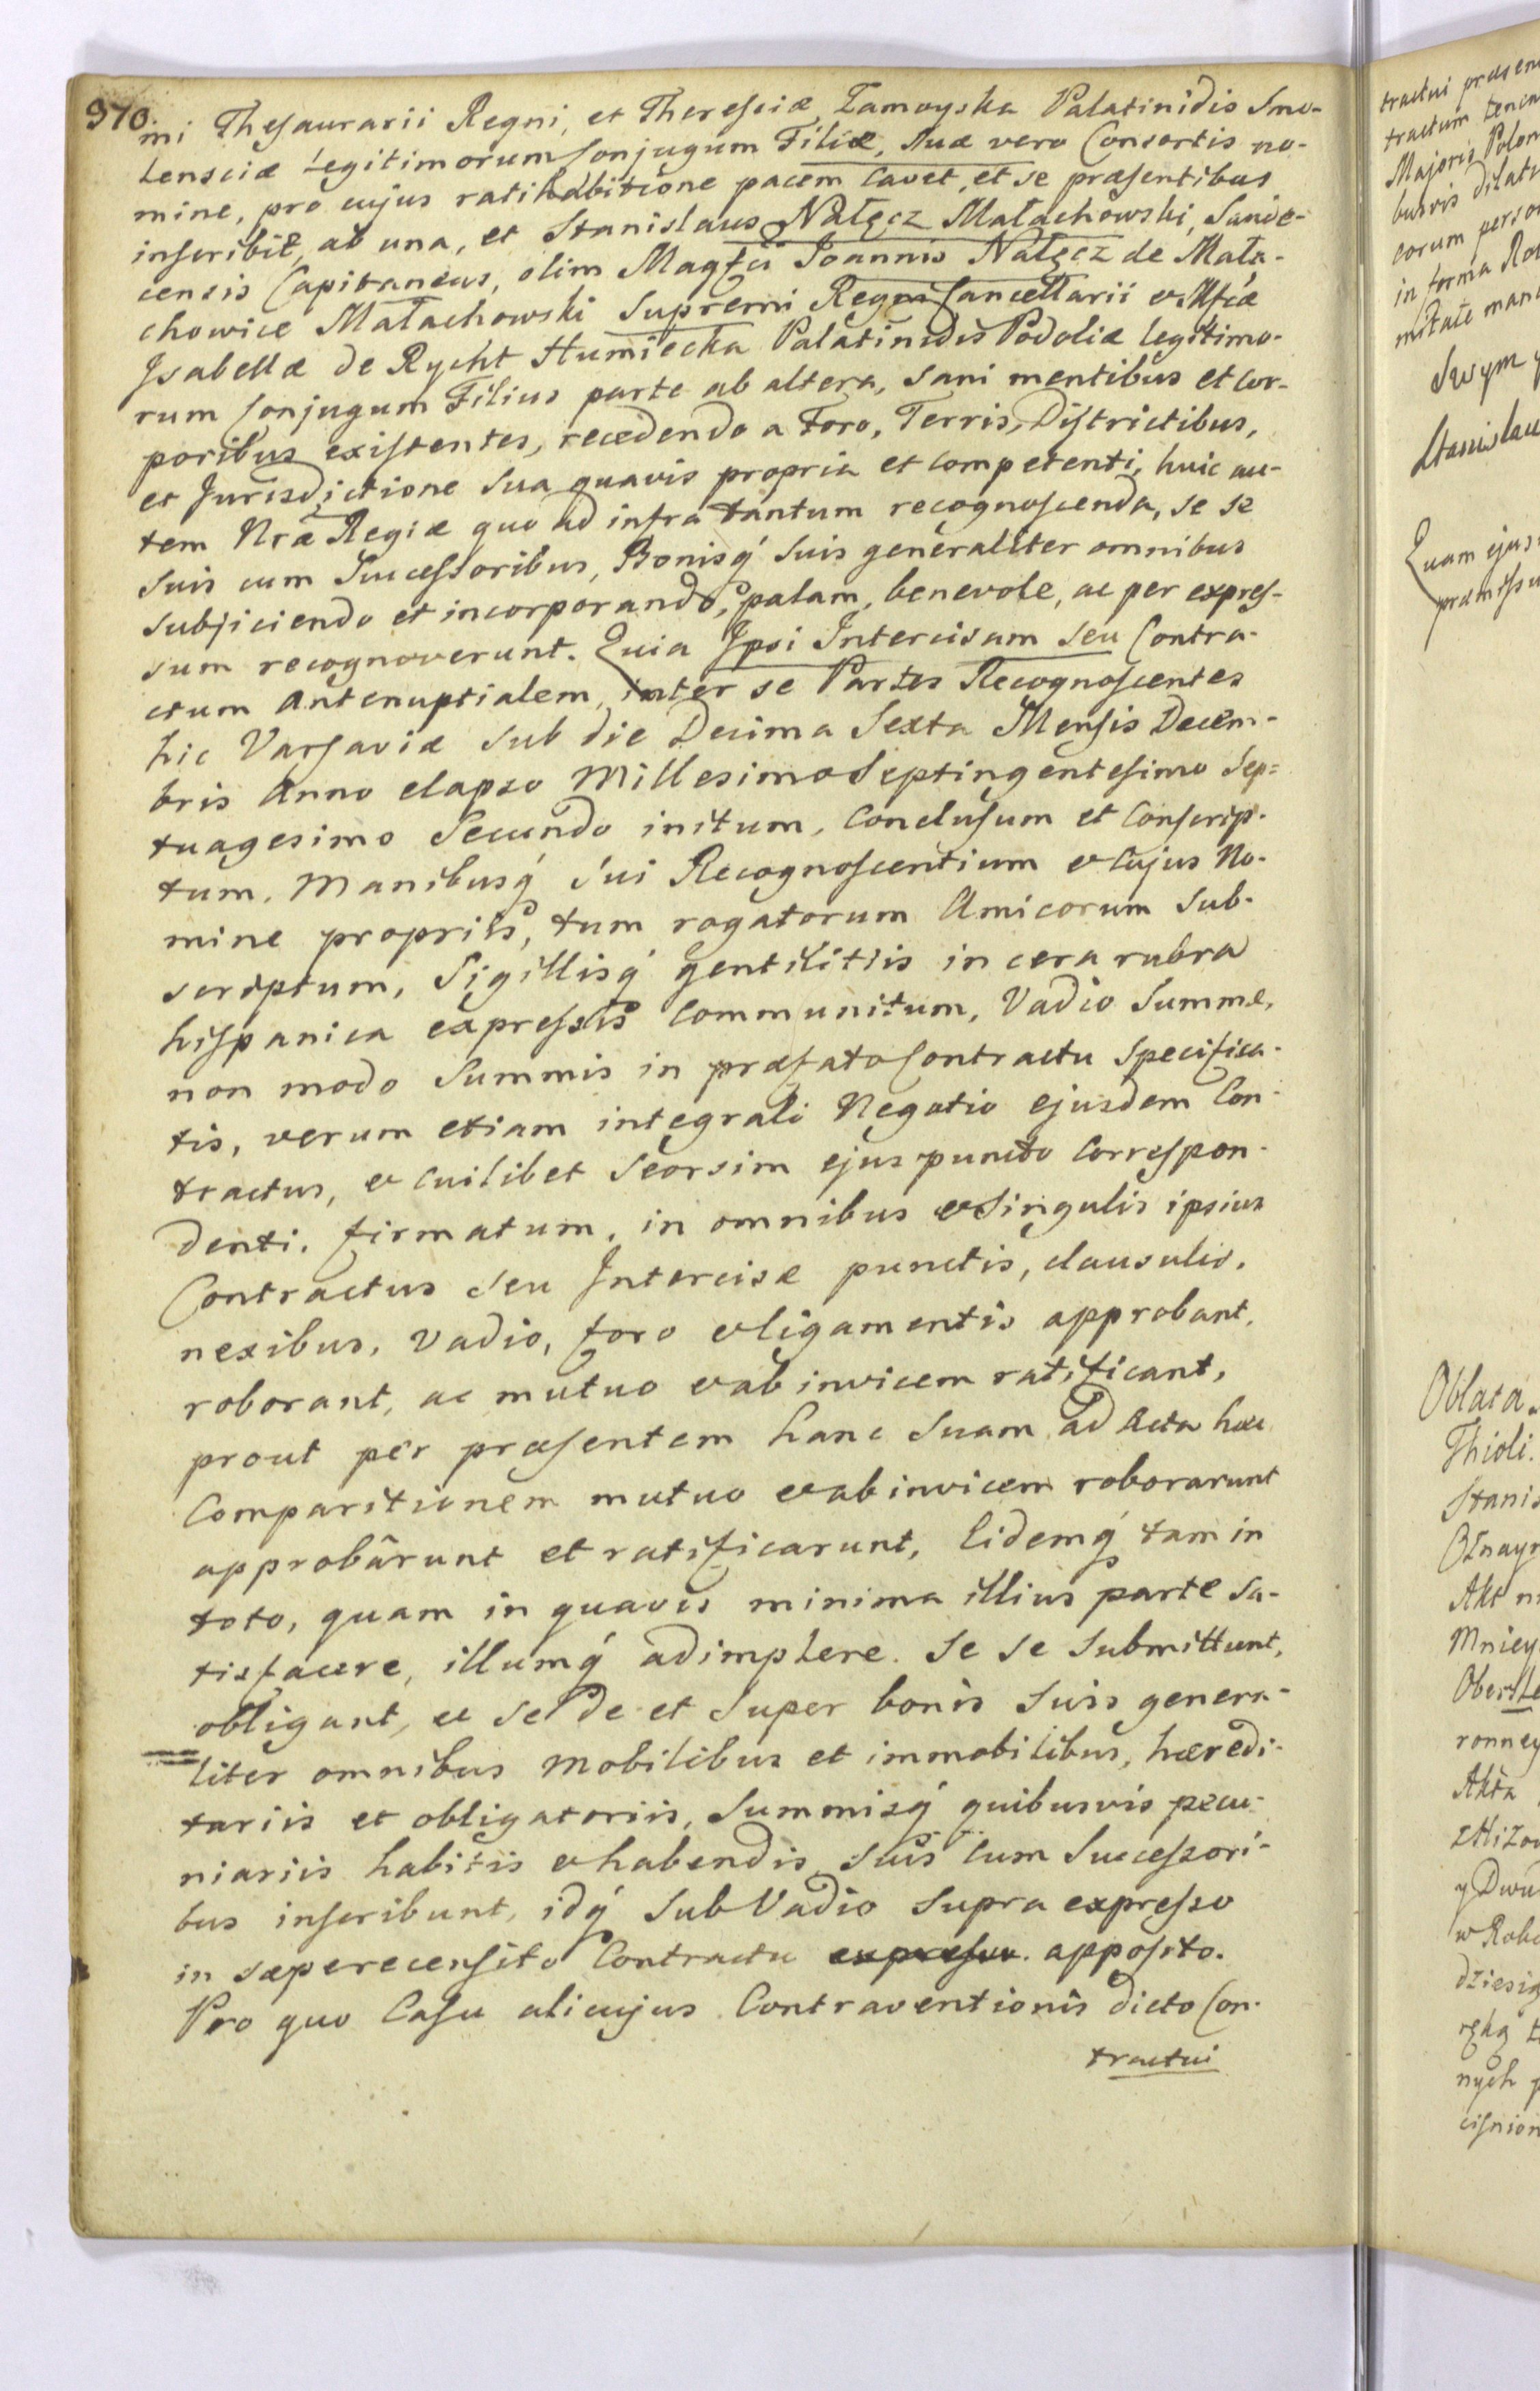 970.
mi Thesaurarii Regni, et Theresciæ Zamoyska Palatinidis Smo-
lensciæ Legitimorum Conjugum Filiæ, suæ vero Consortis no-
mine, pro cujus ratihabitione pacem cavet, et se præsentibus
inscribit, ab una, et Stanislaus Nałęcz Małachowski, Sande-
censis Capitaneus, olim Magfci Joannis Nałęcz de Mała-
chowice Małachowski Supremi Regni Cancellarii & Mfcæ
Isabellæ de Rycht Humiecka Palatinidis Podoliæ legitimo-
rum Conjugum Filius parte ab altera, sani mentibus et cor-
poribus existentes, recedendo a Foro, Terris, Districtibus,
et Jurisdictione sua quavis propria et competenti, huic au-
tem Nræ Regiæ quo ad infra tantum recognoscenda, se se
suis cum Successoribus, Bonisq́ suis generaliter omnibus
subjiciendo et incorporando, palam, benevole, ac per expres-
sum recognoverunt. Quia Ipsi Intercisam seu Contra-
ctum Antenuptialem, inter se Partes Recognoscentes
hic Varsaviæ sub die Decima Sexta Mensis Decem-
bris Anno elapso Millesimo Septingentesimo Sep=
tuagesimo Secundo initum, Conclusum et Conscrip-
tum. Manibusq́ sui Recognoscentium & Cujus No-
mine propriis, tum rogatorum Amicorum sub-
scriptum, Sigillisq́ gentilitiis in cera rubra
hispanica expressis Communitum, Vadio Summæ,
non modo Summis in præfato Contractu Specifica-
tis, verum etiam integrali Negotio ejusdem Con-
tractus, & cuilibet seorsim ejus puncto Correspon-
denti. firmatum, in omnibus & Singulis ipsius
Contractus seu Intercisæ punctis, clausulis,
nexibus, vadio, foro & ligamentis approbant,
roborant, ac mutuo & ab invicem ratificant,
prout per præsentem hanc suam ad Acta hæc
Comparitionem mutuo & ab invicem roborarunt
approbârunt et ratificarunt, Eidemq́ tam in
toto, quam in quavis minima illius parte sa-
tisfacere, illumq́ adimplere. Se se Submittunt,
obligant, & se de et super bonis suis genera-
liter omnibus Mobilibus et immobilibus, hæredi-
tariis et obligatoriis, Summisq́ quibusvis pecu-
niariis habitis & habendis, suis cum Successori-
bus inscribunt, idq́ sub Vadio supra expresso
in sæperecensito Contractu expresso. apposito.
Pro quo Casu alicujus Contraventionis dicto Con-
tractui
tractui præsen
tractum tenen
Majoris Polon
busvis dilati
eorum person
in forma Ro
mitate man
Stanislau
Quam ejus
præmissu
Oblata
Thioli.
Stanis
Akt n
Mniey
Oberste
ronney
Akta
y Dwu
w Robo
dziesią
ręką
nych p